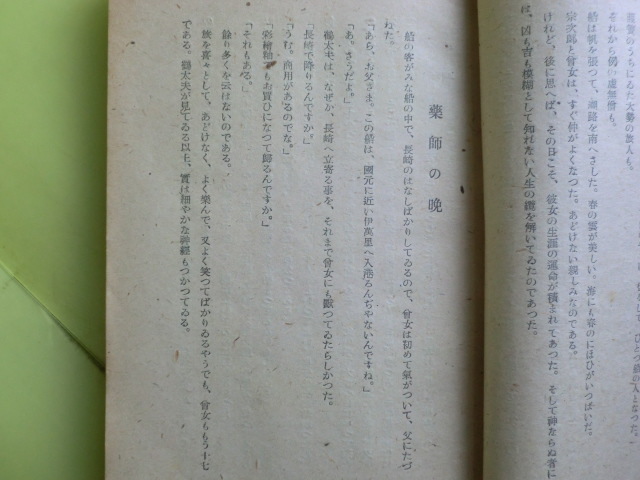 船は帆を張つて、潮路を南へさした。春の雲が美しい。海にも春のにほひがいつぱいだ。
宗次郎と曾女は、すぐ仲がよくなつた。あどけない親しみなのである。
けれど、後に思へば、その日こそ、彼女の生涯の運命が積まれてあつた。そして神ならぬ者に
は、凶も吉も模糊として知れない人生の纜を解いてゐたのであつた。
藥師の晩
船の客がみな船の中で、長崎のはなしばかりしてゐるので、曾女は初めて氣がついて、父にたづ
ねた。
「あら、お父さま。この船は、國元に近い伊萬里へ入港るんぢやないんですね。」
「あ。さうだよ。」
鶴太夫は、なぜか、長崎へ立寄る事を、それまで曾女にも默つてゐたらしかつた。
「長崎で降りるんですか。」
「うむ。商用があるのでな。」
「彩繪釉でもお買ひになつて歸るんですか。」
「それもある。」
餘り多くを云はないのである。
旅を喜々として、あどけなく、よく樂んで、又よく笑つてばかりゐるやうでも、曾女ももう十七
である。鶴太夫が見てゐる以上、實は細やかな神經もつかつてゐる。